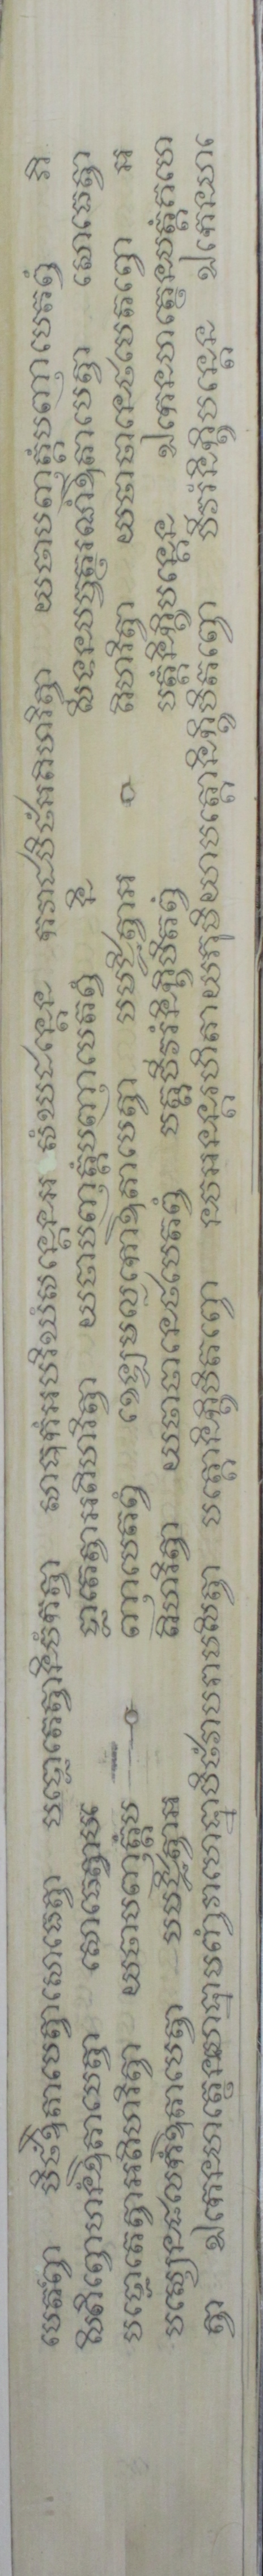 បេតព្វា បិថំឱតាបេត្វាសោធេត្វា បប្ផោតេត្វានិចំកត្វា សាធុកំអបរិឃំសន្តេនអ សំឃដន្តេន កវាដបិថំអតិហរិត្វា យថាបញ្ញត្តំបញ្ញាបេតព្វំ ភិ
សិពិព្វោហនំឱតាបេត្វា សោធេត្វាបប្ផោតេត្វាអតិហរិត្វា យថាបញ្ញត្តំបញ្ញាបេតព្វំ និសិទនបច្ចត្ថរណំឱតាបេត្វា សោធេត្វា
បប្ផោតេត្វាអតិហរិត្វា យថាបញ្ញត្តំបញ្ញាបេតព្វំ ខេឡមល្លកោឱតាបេត្វា បមជ្ជិត្វាអតិហរិត្វា យថាឋានេថបេតព្វោ អ
បស្សេនផលកំឱតាបេត្វា បមជ្ជិត្វាអតិហរិត្វា យថាឋានេថបេតព្វំ បត្តចីវរំនិក្ខិបិតព្វំ បត្តំនិក្ខិបន្តេន ឯកេនហត្ថេនបត្តំគហេ
ត្វា ឯកេនហត្ថេនហេដ្ឋាមញ្ចំវាហេដ្ឋាបិថំវាបរាមសិត្វា បត្តោនិក្ខិបិតព្វោ នចអនន្តរហិតាយភុមិយាបត្តោនិក្ខិបិតព្វោ ចិវរំនិក្ខិបន្តេន ឯកេនហេ